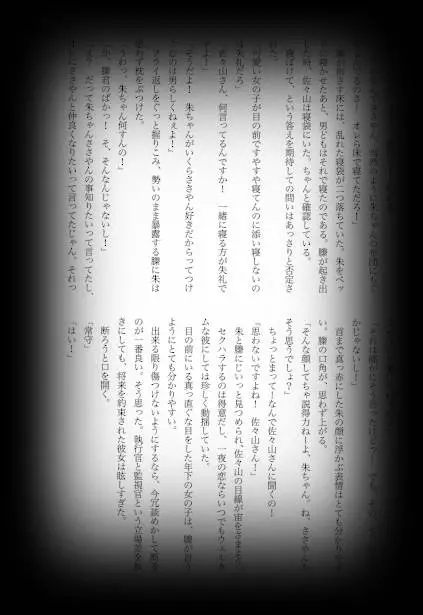 当然のように朱ちゃんの布団に
なるのさー！　オレら床で寝てただろ！
が指さす床には、乱れた寝袋が二つ落ちていた。朱をベッ
寝かせたあと、男どもはそれで寝たのである。縢が起き出
した時、佐々山は寝袋にいた。ちゃんと確認している。
寝ぼけて、という答えを期待しての問いはあっさりと否定さ
いた。
可愛い女の子が目の前ですやすや寝てんのに添い寝しないの
は失礼だろ」
佐々山さん、何言ってるんですか！　一緒に寝る方が失礼で
よ！」
そうだよ！　朱ちゃんがいくらささやん好きだからってつけ
むのは男らしくねぇよ！」
フライ返しをぐっと握りこみ、勢いのまま暴露する縢に朱は
わず枕をぶつけた。
うわっ、朱ちゃん何すんの！」
縢君のばかっ！　そ、そんなんじゃないし！」
え？　だって朱ちゃんささやんの事知りたいって言ってたし、
にささやんと仲良くなりたいって言ってたじゃん。それっ
かじゃないし！」
首まで真っ赤にした朱の顔に浮かぶ表情はとても分かりやす
い。縢の口角が、思わず上がる。
「そんな顔してちゃ説得力ねーよ、朱ちゃん。ね、ささやん
そう思うでしょ？」
ちょっとまって！なんで佐々山さんに聞くの！
「思わないですよね！　佐々山さん！」
朱と縢にじいっと見つめられ、佐々山の目線が宙をさまよ
セクハラするのは得意だし、一夜の恋ならいつでもウェルカ
ムな彼にしては珍しく動揺していた。
目の前にいる真っ直ぐな目をした年下の女の子は、縢が言う
ようにとても分かりやすい。
出来る限り傷つけないようにするなら、今冗談めかして断る
のが一番良い。そう思った。執行官と監視官という立場差を抜
きにしても、将来を約束された彼女は眩しすぎた。
断ろうと口を開く。
「常守」
「はい！」